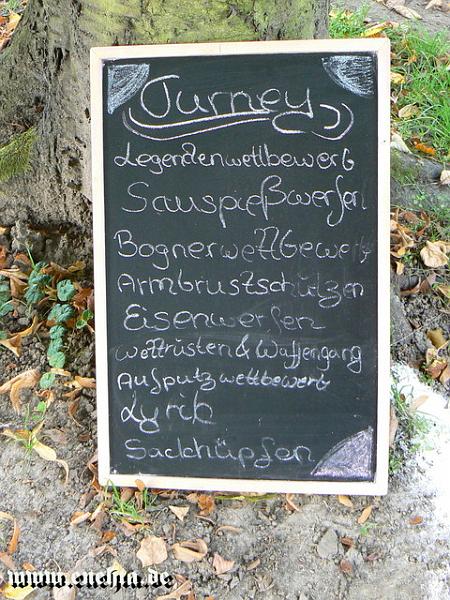 Turney
Legendenwettbewerb
Sauspießwerfen
Bognerwettbewerb
Armbrustschützen
Eisenwerfen
Wettrüsten & Waffengang
Aufputzwettbewerb
Lyrik
Sackhüpfen